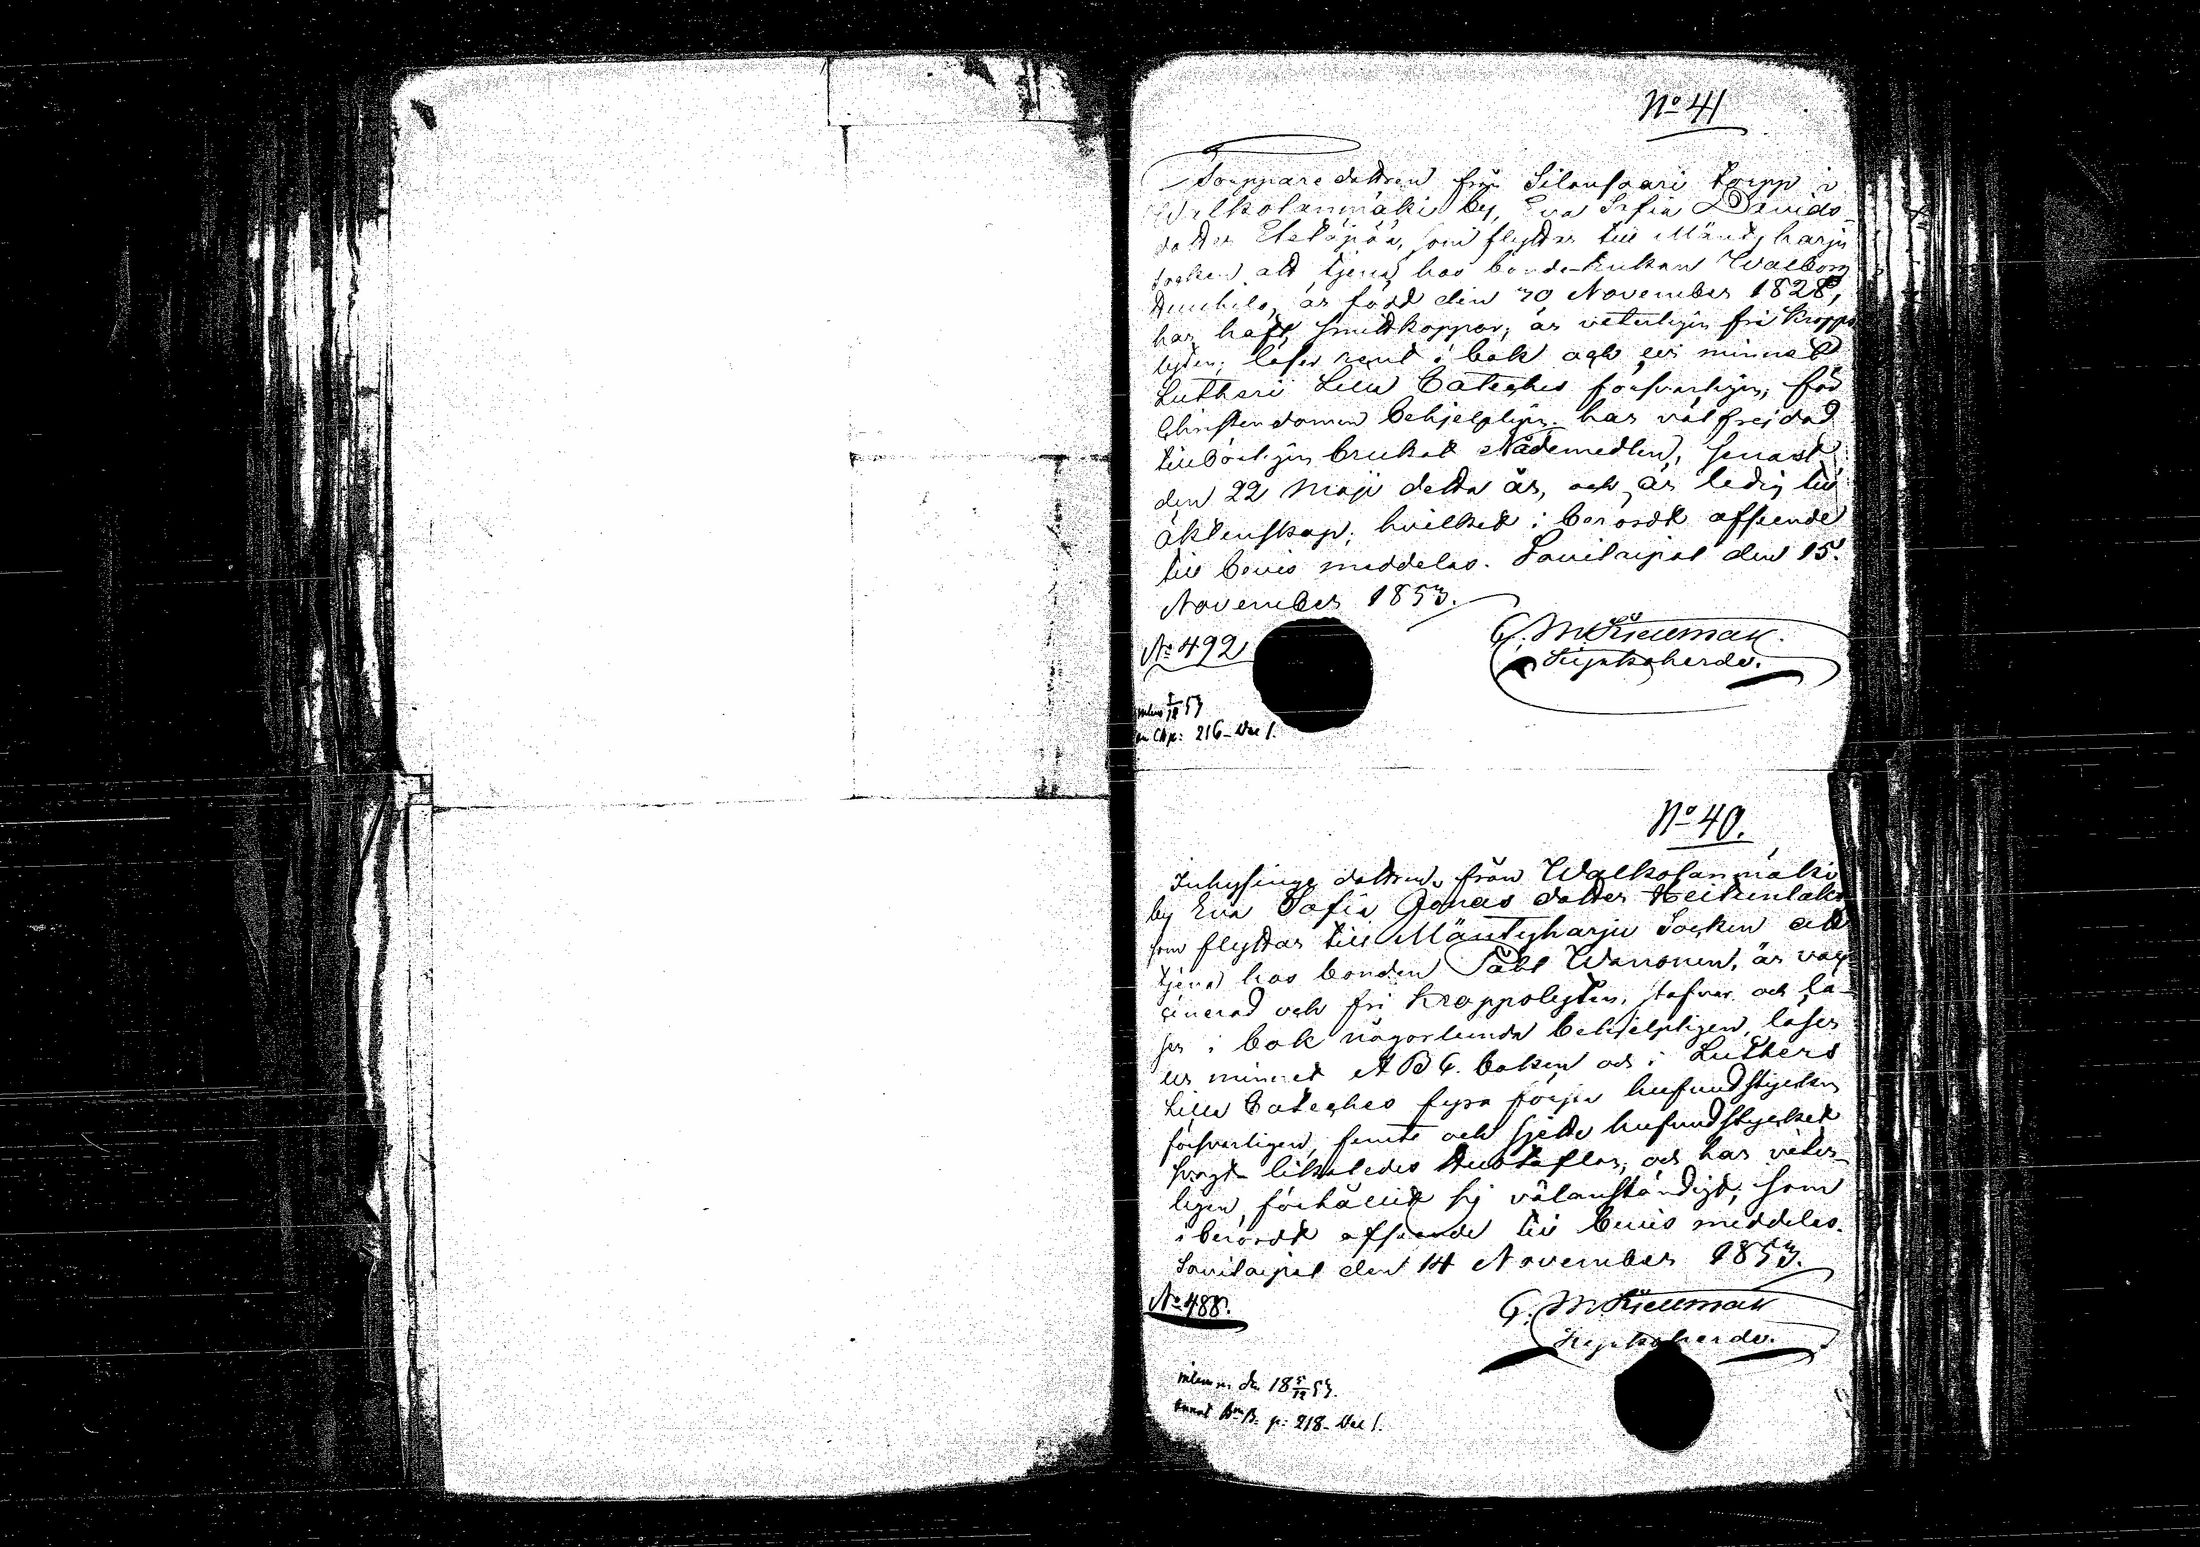 No 41
Torppare dottren från Silansaari torpp i
Walkolanmäki by, Eva Sofia Davids-
dotter Eteläpää, som flyttar till Mäntyharju
socken att tjena hos bonde-enkan Walborg
är född den 30 November 1828,
har haft smittkoppor, är veterligen fri kropps
lyten; läser rent i bok och ur minnet
Lutheri Lilla Cateches försvarligen, för
Christendomen behjelpligen. har välfrejdad
tillbörligen brukat Nådemedlen, senast
den 22 Maji detta år, och är ledig till
äktenskap; hvilket i berördt afseende
till bevis meddelas. Savitaipal den 15.
November 1853.
No 492
G. M. Kiellman.
Kyrkoherde.
53
p: 216
No 40.
Inhysinge dottren från Walkolanmäki
by Eva Sofia Jonas dotter
som flyttar till Mäntyharju Socken att
tjena hos bonden Påhl Warronen, är vac-
cinerad och fri kroppslyten, stafvar och lä-
ser i bok någorlunda behjelpligen, läser
ur minnet A B C. boken och i Luthers
Lilla Cateches fyra förga hufvudstycken
försvarligen, femte och sjette hufvudstycket
svagt likaledes Hustaflan, och har veter-
ligen förhållit sig välanständigt; som
i berördt afseende till bevis meddelas.
Savitaipal den 14 November 1853.
No 488.
G. M. Kiellman
Kyrkoherde.
den 18 5/12 53.
p: 218